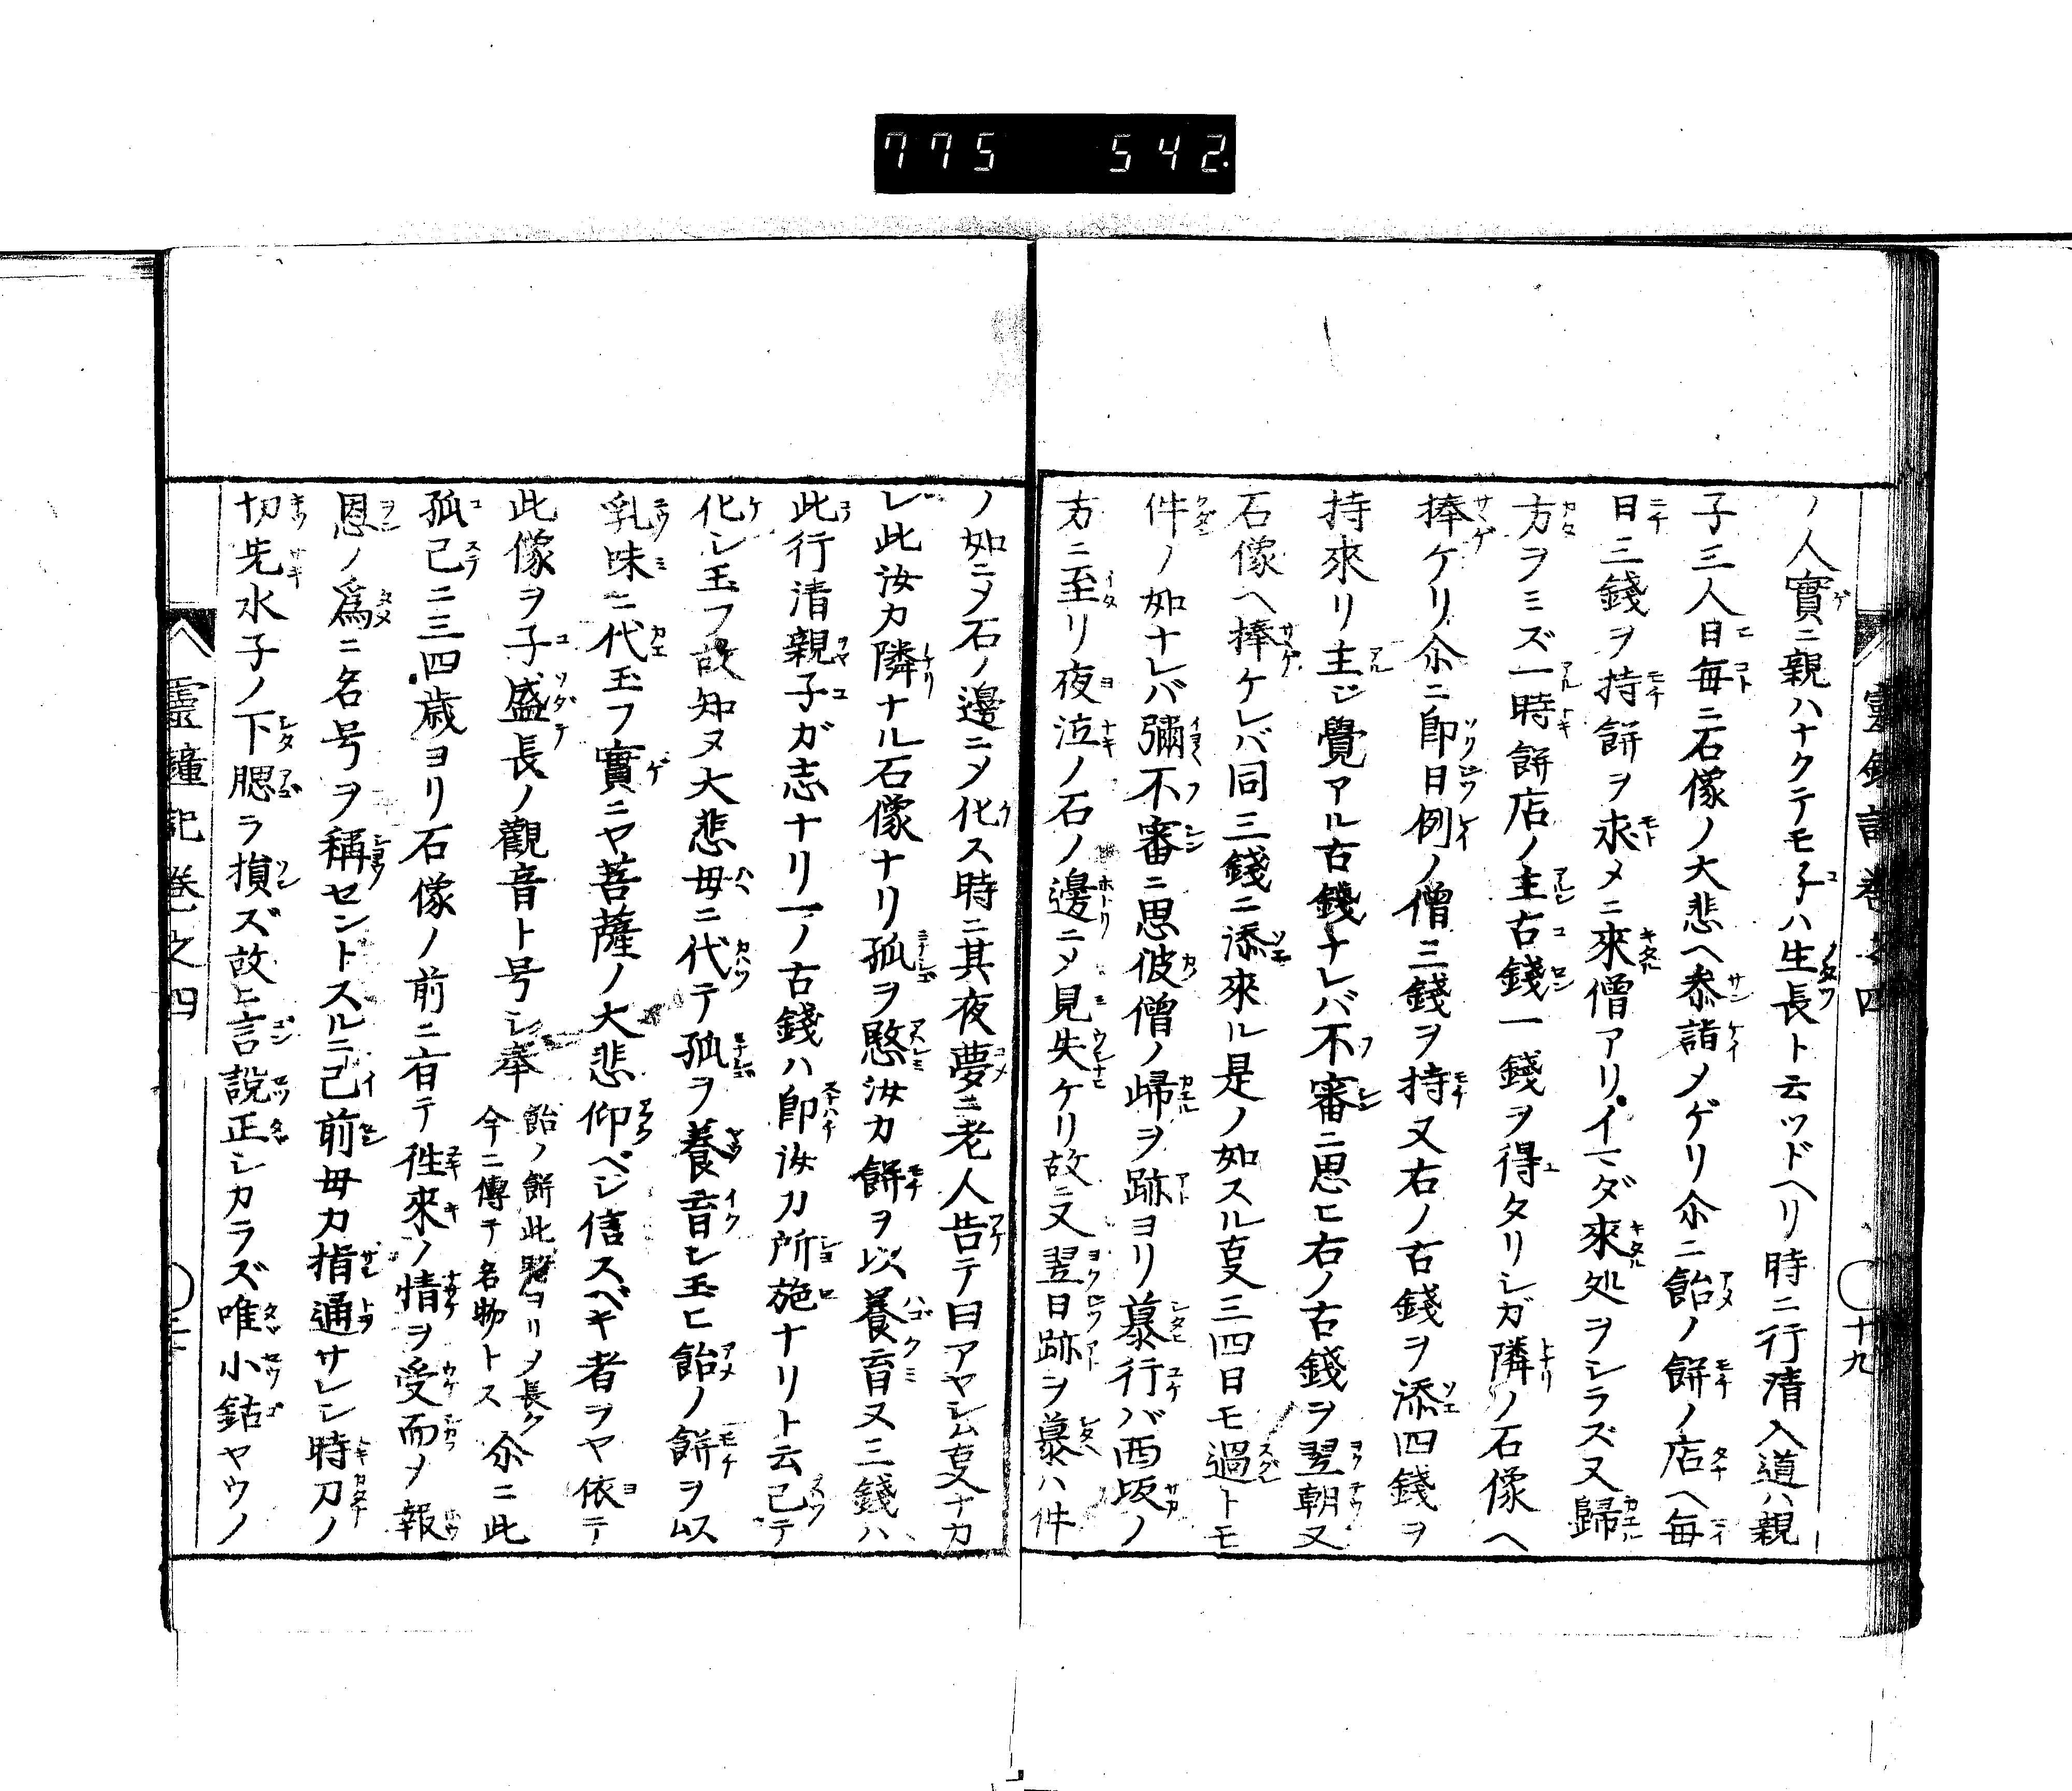 775 542.
ノ人實ニ親ハナクテモ子ハ生長ト云ツドヘリ時ニ行清入道ハ親
子三人日毎ニ石像ノ大悲ヘ參詣メゲリ尒ニ飴ノ餅ノ店ヘ毎
日三錢ヲ持餅ヲ求メニ來僧アリイマダ來処ヲシラズ又歸
方ヲミズ一時餅店ノ主古錢一錢ヲ得タリシガ隣ノ石像ヘ
捧ケリ尒ニ即日例ノ僧三錢ヲ持又右ノ古錢ヲ添四錢ヲ
持來リ主ジ覺アル古錢ナレバ不審ニ思ヒ右ノ古錢ヲ翌朝又
石像ヘ捧ケレバ同三錢ニ添來ル是ノ如スル叓三四日モ過トモ
件ノ如ナレバ彌不審ニ思彼僧ノ歸ヲ跡ヨリ慕行バ西坂ノ
方ニ至リ夜泣ノ石ノ邊ニメ見失ケリ故ニ又翌日跡ヲ慕ハ件
ノ如ニメ石ノ邊ニメ化ス時ニ其夜夢ニ老人告テ曰アヤシム叓ナカ
レ此汝カ隣ナル石像ナリ孤ヲ愍汝カ餅ヲ以養育又三錢ハ
此行清親子ガ志ナリ一ノ古錢ハ即汝カ所施ナリト云已テ
化レ玉フ故知ヌ大悲母ニ代テ孤ヲ養育シ玉ヒ飴ノ餅ヲ以
乳味ニ代玉フ實ニヤ菩薩ノ大悲仰ベシ信スベキ者ヲヤ依テ
此像ヲ子盛長ノ觀音ト号シ奉 飴ノ餅此ヨリメ長ク今ニ傳テ名物トス 尒ニ此
孤已ニ三四歳ヨリ石像ノ前ニ有テ徃來ノ情ヲ受而メ報
恩ノ爲ニ名号ヲ稱セントスルニ已前母カ指通サレシ時刀ノ
切先水子ノ下腮ヲ損ズ故ニ言説正シカラズ唯小鈷ヤウノ
靈鐘記卷之四
十九